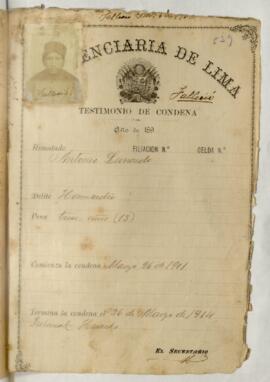 Falleció
ENCIARIA DE LIMA
Falleció
TESTIMONIO DE CONDENA
Año de 189
Rematado FILIACION N.º CELDA N.º
Antonio
Delito Homicidio
Pena trece años (13)
Comienza la condena Marzo 26 de 1901
Termina la condena el 26 de Marzo de 1914
EL SECRETARIO